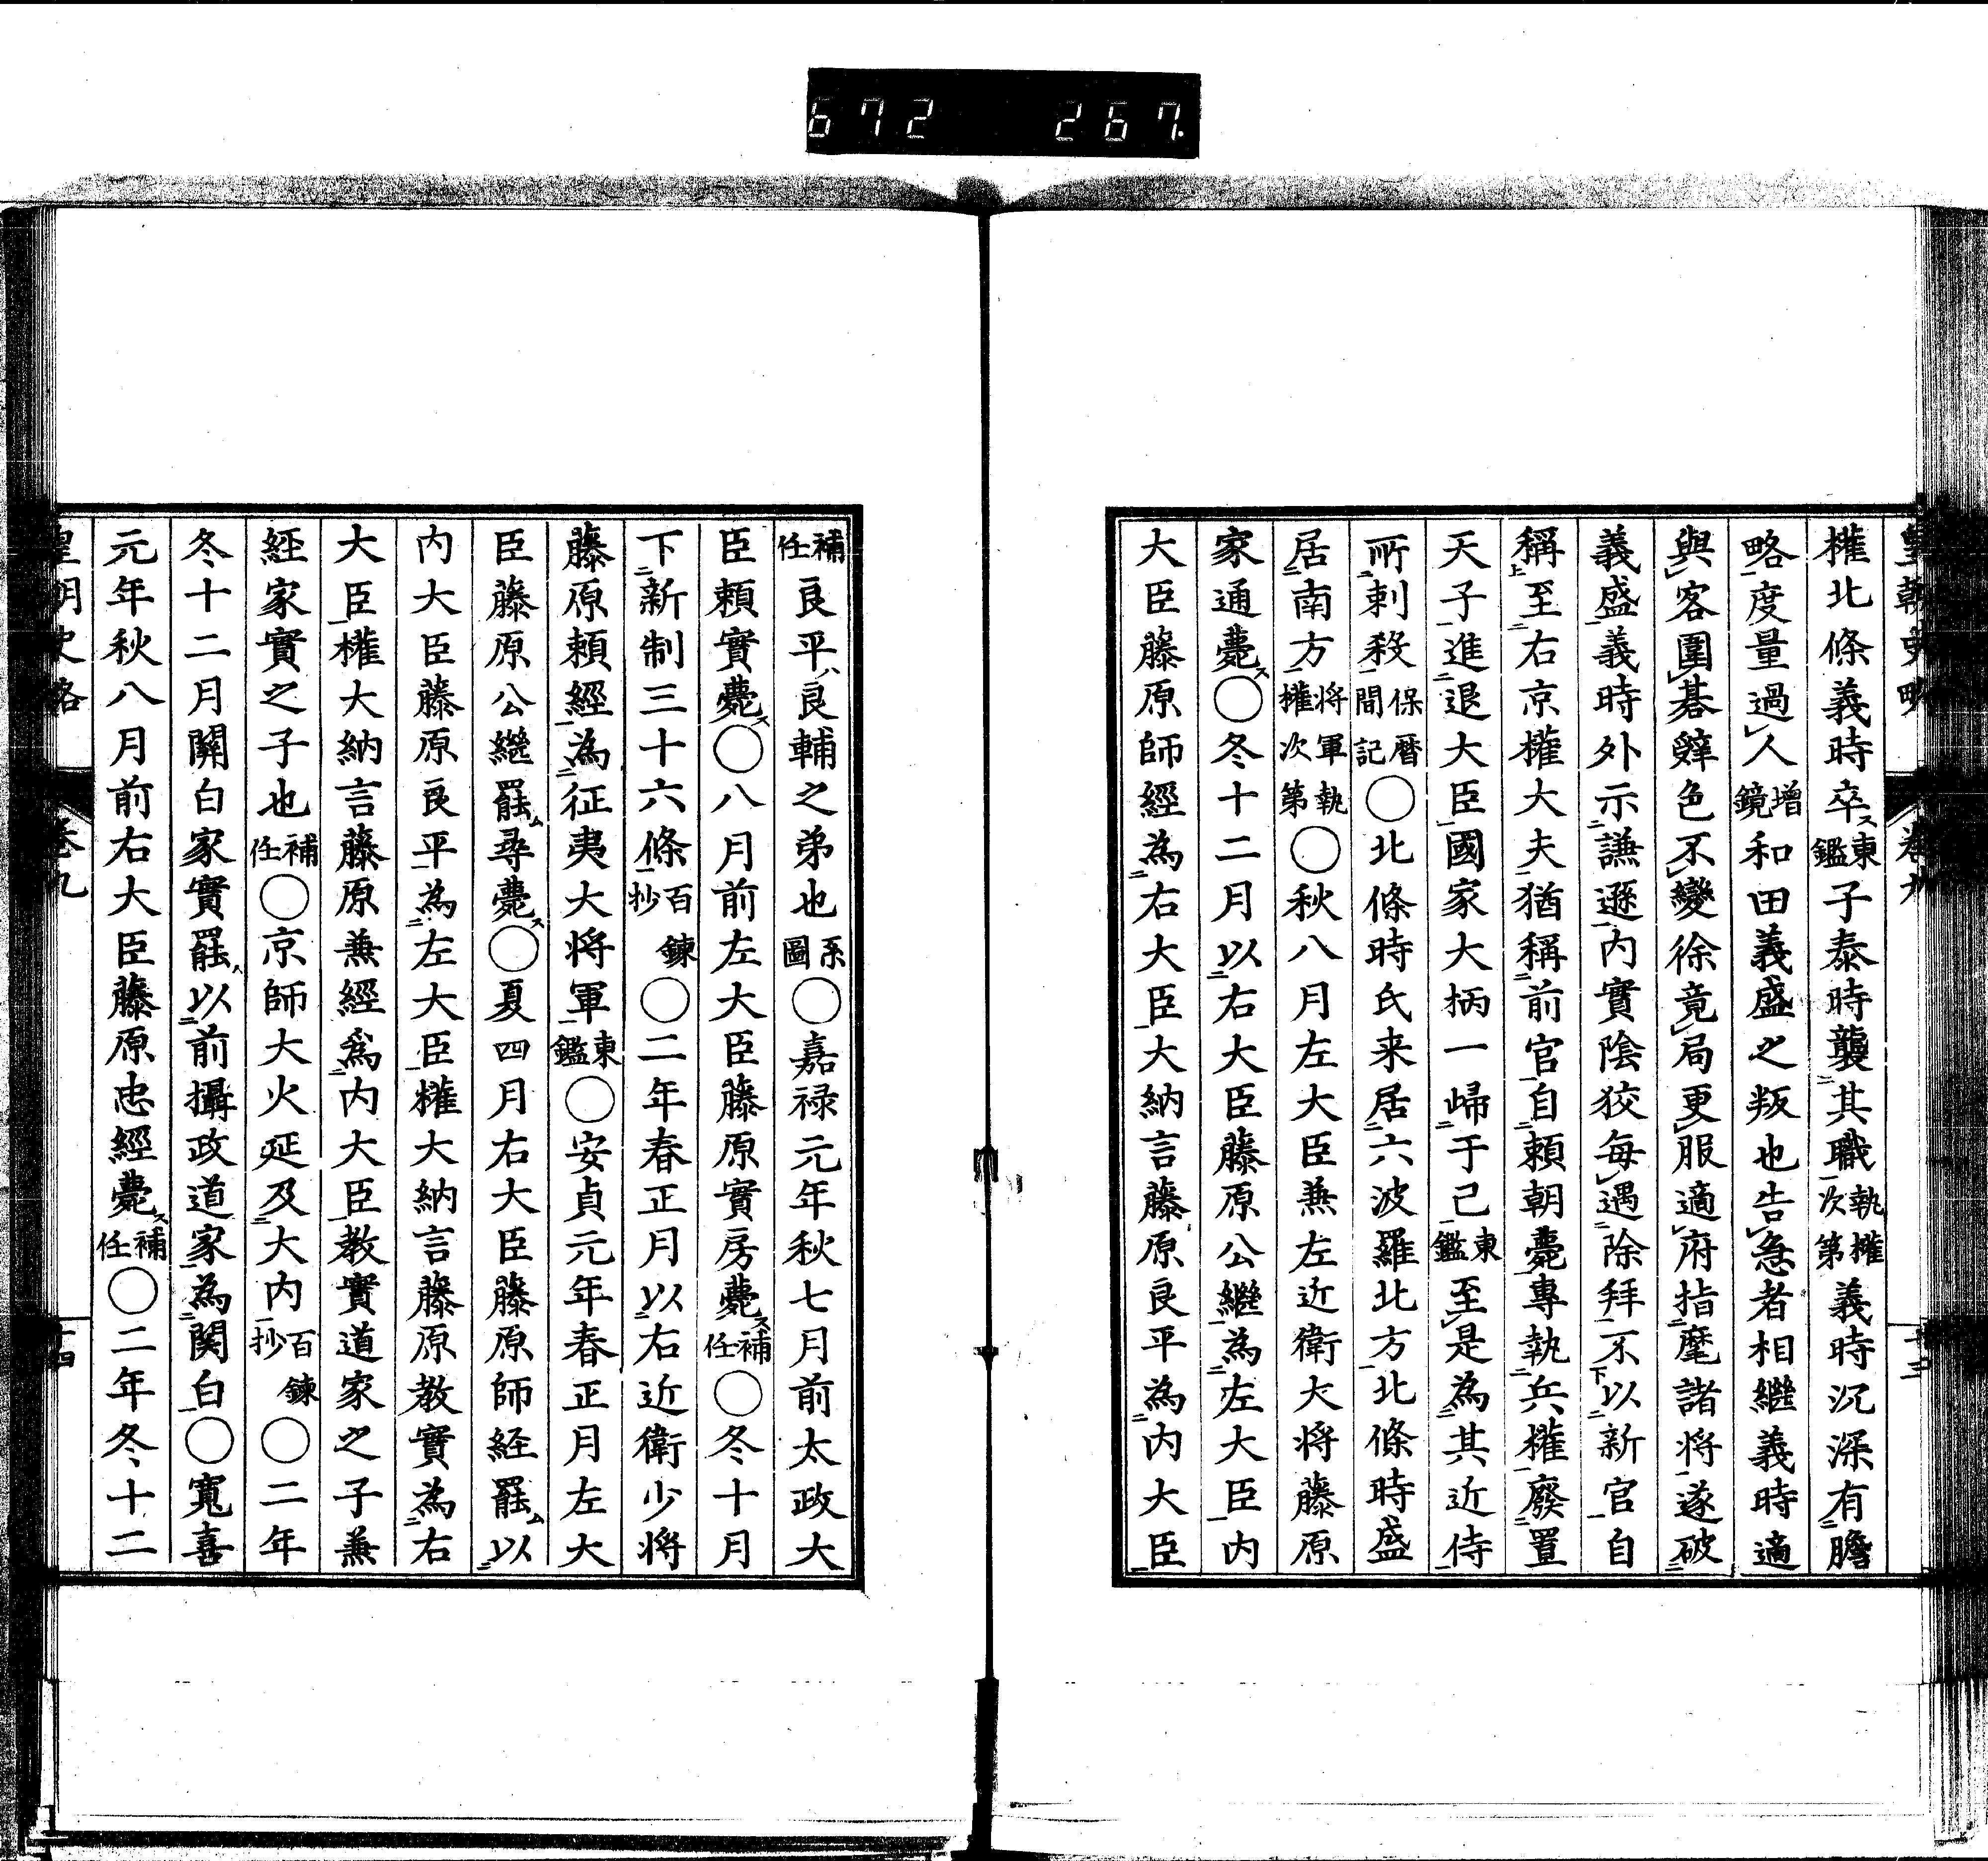 672 267.
皇朝史略 卷九
權北條義時卒東鑑子泰時襲其職執權次第義時沉深有膽
略度量過人增鏡和田義盛之叛也告急者相繼義時適
與客圍碁辭色不變徐竟局更服適府指麾諸將遂破
義盛義時外示謙遜內實陰狡每遇除拜不以新官自
稱至右京權大夫猶稱前官自賴朝薨專執兵權廢置
天子進退大臣國家大柄一歸于己東鑑至是為其近侍
所刺殺保曆間記〇北條時氏来居六波羅北方北條時盛
居南方將軍執權次第〇秋八月左大臣兼左近衛大将藤原
家通薨〇冬十二月以右大臣藤原公繼為左大臣內
大臣藤原師經為右大臣大納言藤原良平為內大臣
補任良平良輔之弟也系圖〇嘉禄元年秋七月前太政大
臣賴實薨〇八月前左大臣藤原實房薨補任〇冬十月
下新制三十六條百鍊抄〇二年春正月以右近衛少將
藤原賴經為征夷大将軍東鑑〇安貞元年春正月左大
臣藤原公繼罷尋薨〇夏四月右大臣藤原師経罷以
內大臣藤原良平為左大臣權大納言藤原教實為右
大臣權大納言藤原兼經為內大臣教實道家之子兼
経家實之子也補任〇京師大火延及大内百鍊抄〇二年
冬十二月關白家實罷以前攝政道家為関白〇寬喜
元年秋八月前右大臣藤原忠經薨補任〇二年冬十二
皇朝史略 卷九 十四